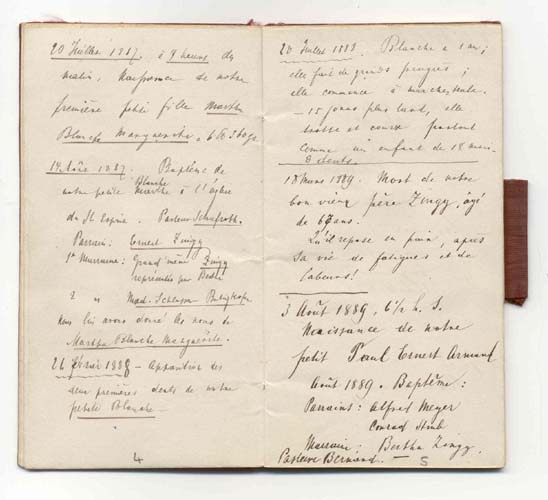 20 Juillet 1887. à 9 heures du
matin, Naissance de notre
première petite fille Martha
Blanche Marguerite,
14 Août 1887. Baptême de
notre petite Blanche Marthe à l'église
du St Esprit. Pasteur
Parrain: Ernest Zingg
1e Marraine: Grand'mère Zingg
représentée par Bertha
2 " Mad. Schlosser
Nous lui avons donné les noms de
Martha Blanche Marguerite.
26 Février 1888 - Apparition des
deux premières dents de notre
petite Blanche -
4
20 Juillet 1888. Blanche a 1 an;
elle fait de grands progrès;
elle commence à marcher seule.
- 15 jours plus tard, elle
trotte et court partout
comme un enfant de 18 mois.
8 dents.
18 Mars 1889. Mort de notre
bon vieux père Zingg, âgé
de 67 ans.
Qu'il repose en paix, après
sa vie de fatigues et de
labeurs!
3 Août 1889, 6 1/2 h. S.
Naissance de notre
petit Paul Ernest Armand
Août 1889. Baptême:
Parrains: Alfred Meyer
Conrad
Marraine: Bertha Zingg.
Pasteur Bernard. -
5